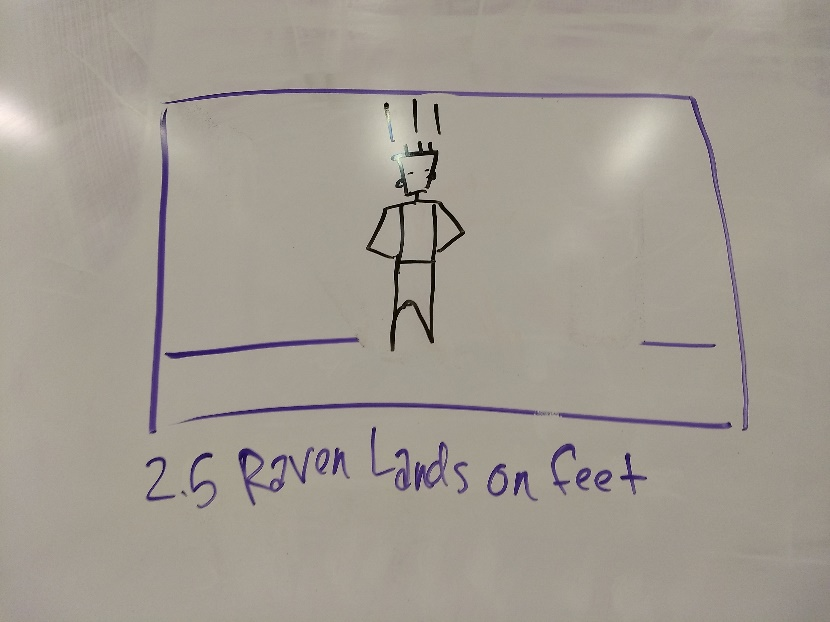 2.5 Raven Lands on feet